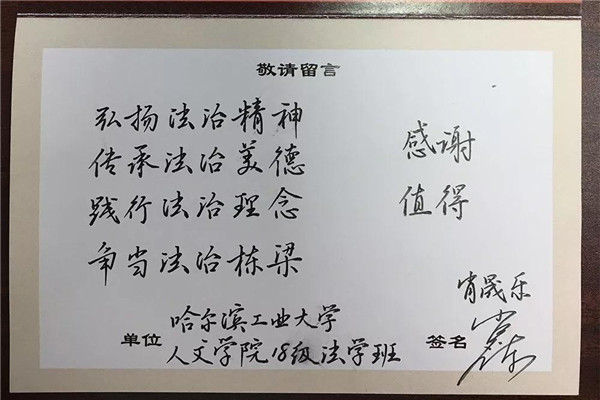 敬请留言
弘扬法治精神
传承法治美德
践行法治理念
争当法治栋梁
感谢
值得
肖晟乐
单位
哈尔滨工业大学
人文学院18级法学班
签名